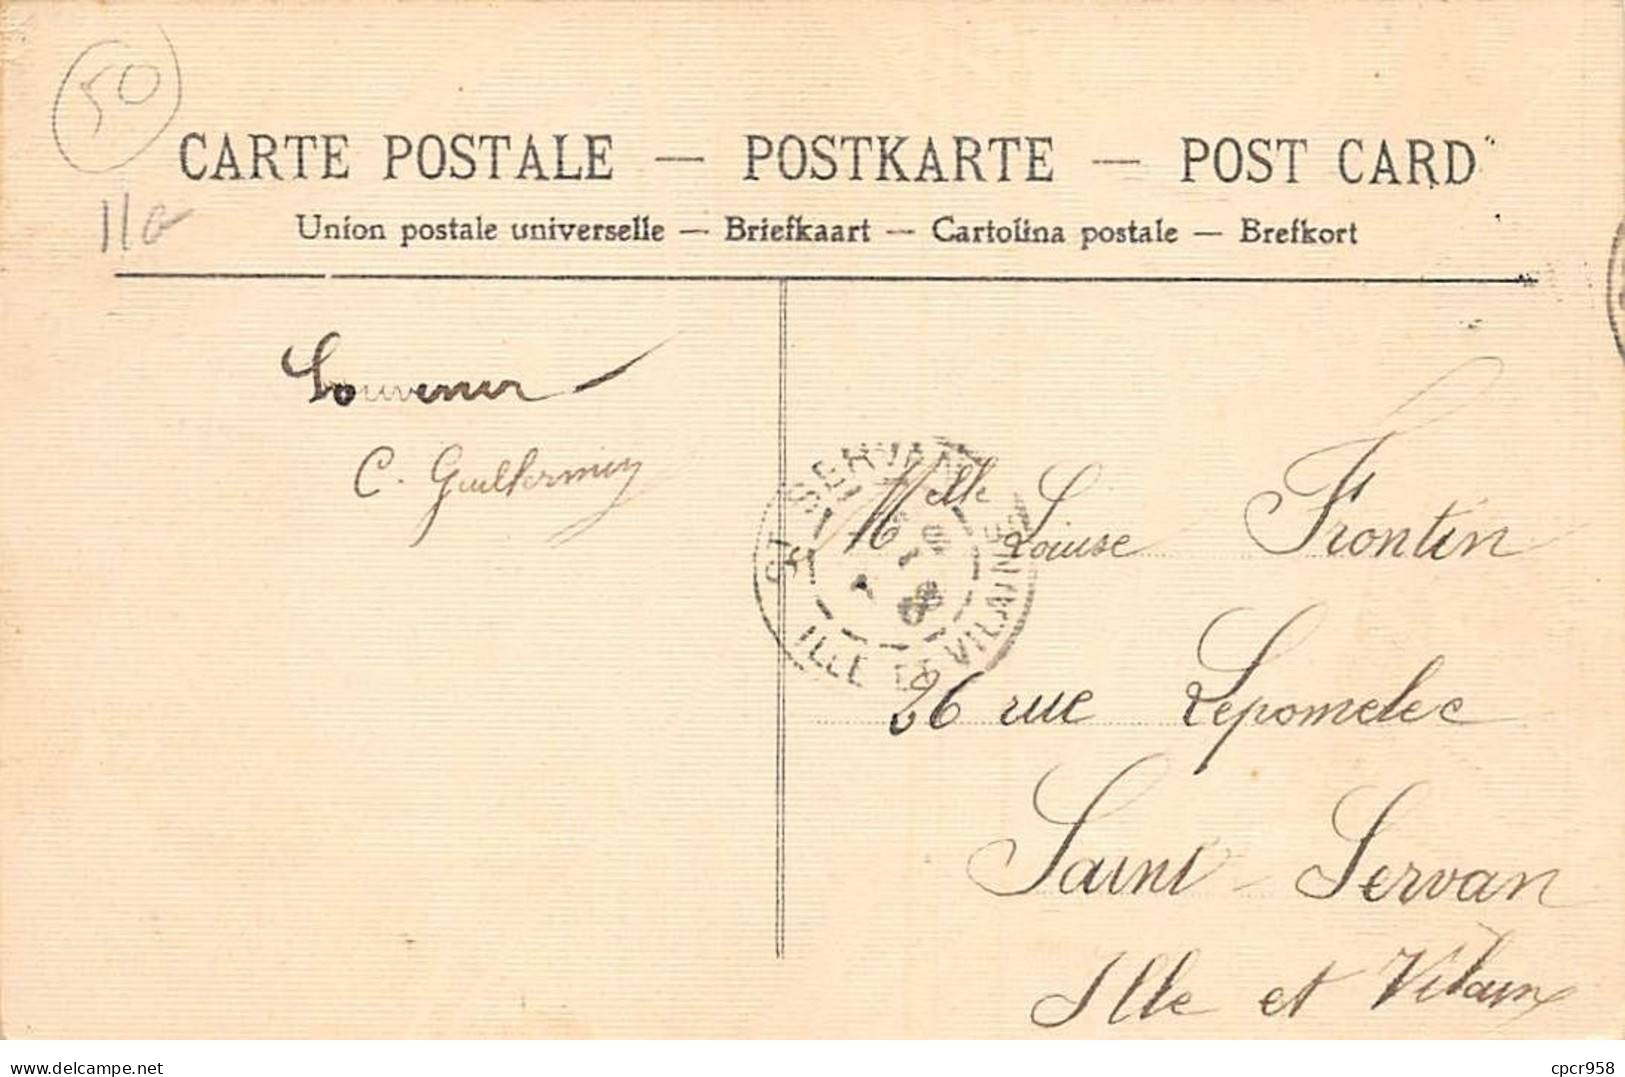 50
CARTE POSTALE — POSTKARTE — POST CARD
11a
Union postale universelle — Briefkaart — Cartolina postale — Brefkort
Souvenir
C. Guillermin
ST SERVAN
ILLE ET VILAINE
Melle Louise Frontin
26 rue Lepomelec
Saint-Servan
Ille et Vilaine
www.delcampe.net
cpcr958